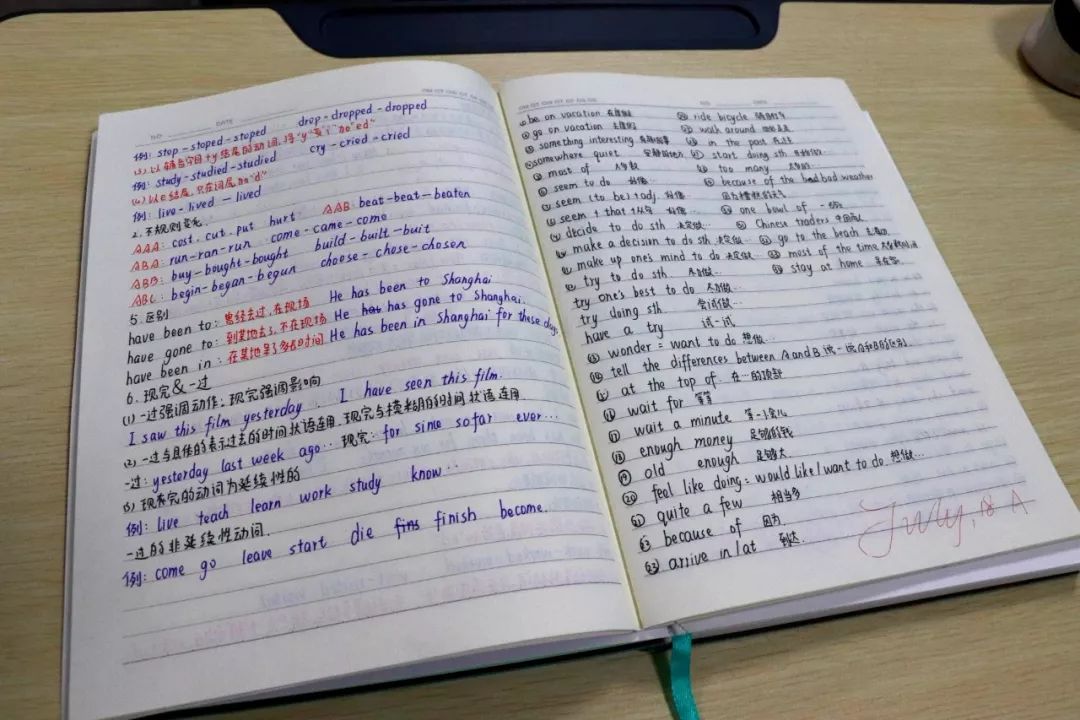 NO. DATE
例: stop-stoped-stoped drop-dropped-dropped
(3) 以辅音字母+y结尾的动词, 将"y"变"i"加"ed"
例: study-studied-studied cry-cried-cried
(4) 以e结尾, 只在词尾加"d"
例: live-lived-lived
2. 不规则变化.
AAA: cost. cut. put hurt AAB: beat-beat-beaten
ABA: run-ran-run come-came-come
ABB: buy-bought-bought build-built-buit
ABC: begin-began-begun choose-chose-chosen
5. 区别
have been to: 曾经去过, 在现场 He has been to Shanghai
have gone to: 到某地去了, 不在现场 He has has gone to Shanghai.
have been in: 在某地呆了多长时间 He has been in Shanghai for these days
6. 现完&一过
(1) 一过强调动作; 现完强调影响
I saw this film yesterday. I have seen this film.
(2) 一过与具体的表示过去的时间状语连用. 现完与模糊的时间状语连用.
一过: yesterday last week ago... 现完: for since so far ever...
(3) 现完的动词为延续性的
例: live teach learn work study know...
一过的非延续性动词.
例: come go leave start die fins finish become.
be on vacation 在度假
go on vacation 去度假
something interesting
somewhere quiet 安静的地方
most of 大多数
seem to do 好像
seem (to be) + adj. 好像
seem + that + 从句 好像...
decide to do sth 决定做...
make a decision to do sth. 决定做...
make up one's mind to do 决定做...
try to do sth. 尽力做...
try one's best to do 尽力做...
try doing sth 尝试做...
have a try 试一试
⑬ wonder = want to do 想做...
⑭ tell the differences between A and B 说一说A和B的区别.
⑮ at the top of 在...的顶部
⑯ wait for 等等
⑰ wait a minute 等一小会儿
⑱ enough money 足够的钱
⑲ old enough 足够大
⑳ feel like doing = would like / want to do 想做...
㉑ quite a few 相当多
because of 因为
㉓ arrive in/at 到达.
ride bicycle
walk around
in the past 在过去
start doing sth
too many
because of the bad bad weather
因为糟糕的天气
one bowl of 一碗
Chinese traders
go to the beach
most of the time
stay at home
July, 18 A